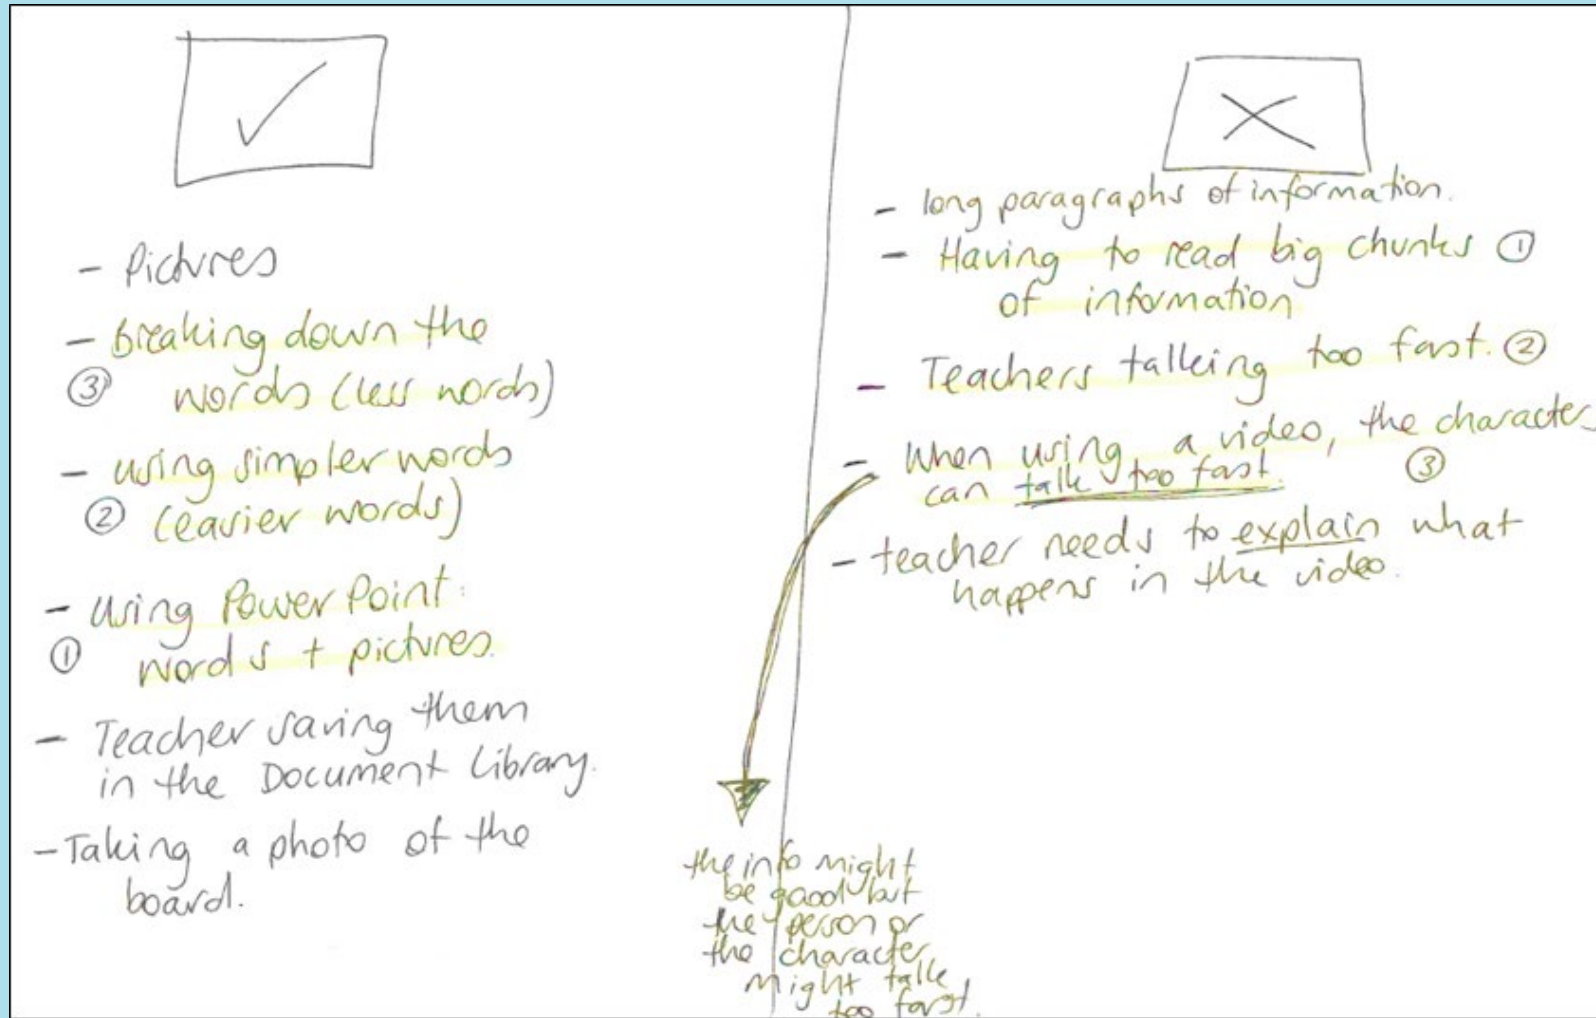 - Pictures
- breaking down the
③ words (less words)
- using simpler words
② (easier words)
- using PowerPoint:
① words + pictures.
- Teacher saving them
in the Document Library.
- Taking a photo of the
board.
- long paragraphs of information.
- Having to read big chunks ①
of information
- Teachers talking too fast. ②
- When using a video, the character
can talk too fast. ③
- teacher needs to explain what
happens in the video.
the info might
be good but
the person or
the character
might talk
too fast.